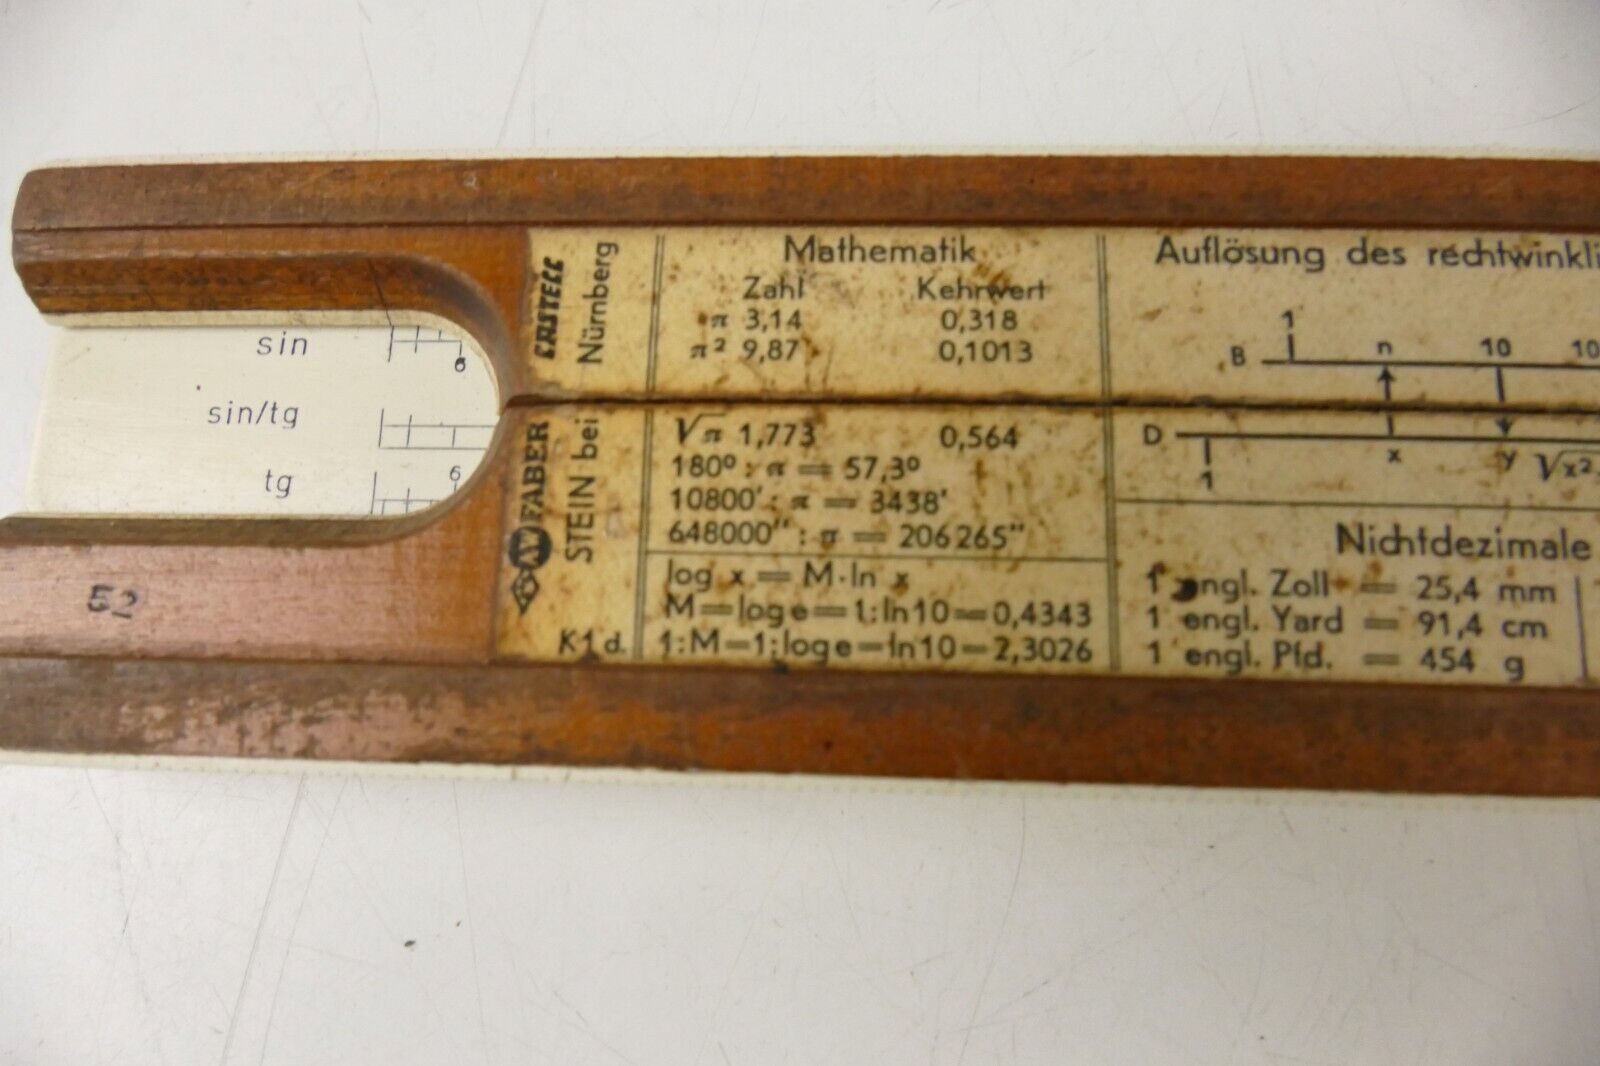 sin
6
sin/tg
tg
6
52
A.W. FABER CASTELL
STEIN bei Nürnberg
K1 d.
Mathematik
Zahl Kehrwert
π 3,14 0,318
π² 9,87 0,1013
√π 1,773 0,564
180° : π = 57,3°
10800' : π = 3438'
648000'' : π = 206265''
log x = M·ln x
M=log e=1:ln10=0,4343
1:M=1:log e=ln10=2,3026
Auflösung des rechtwinkli
1 n 10 10
B
D
1 x y √x²
Nichtdezimale
1 engl. Zoll = 25,4 mm
1 engl. Yard = 91,4 cm
1 engl. Pfd. = 454 g